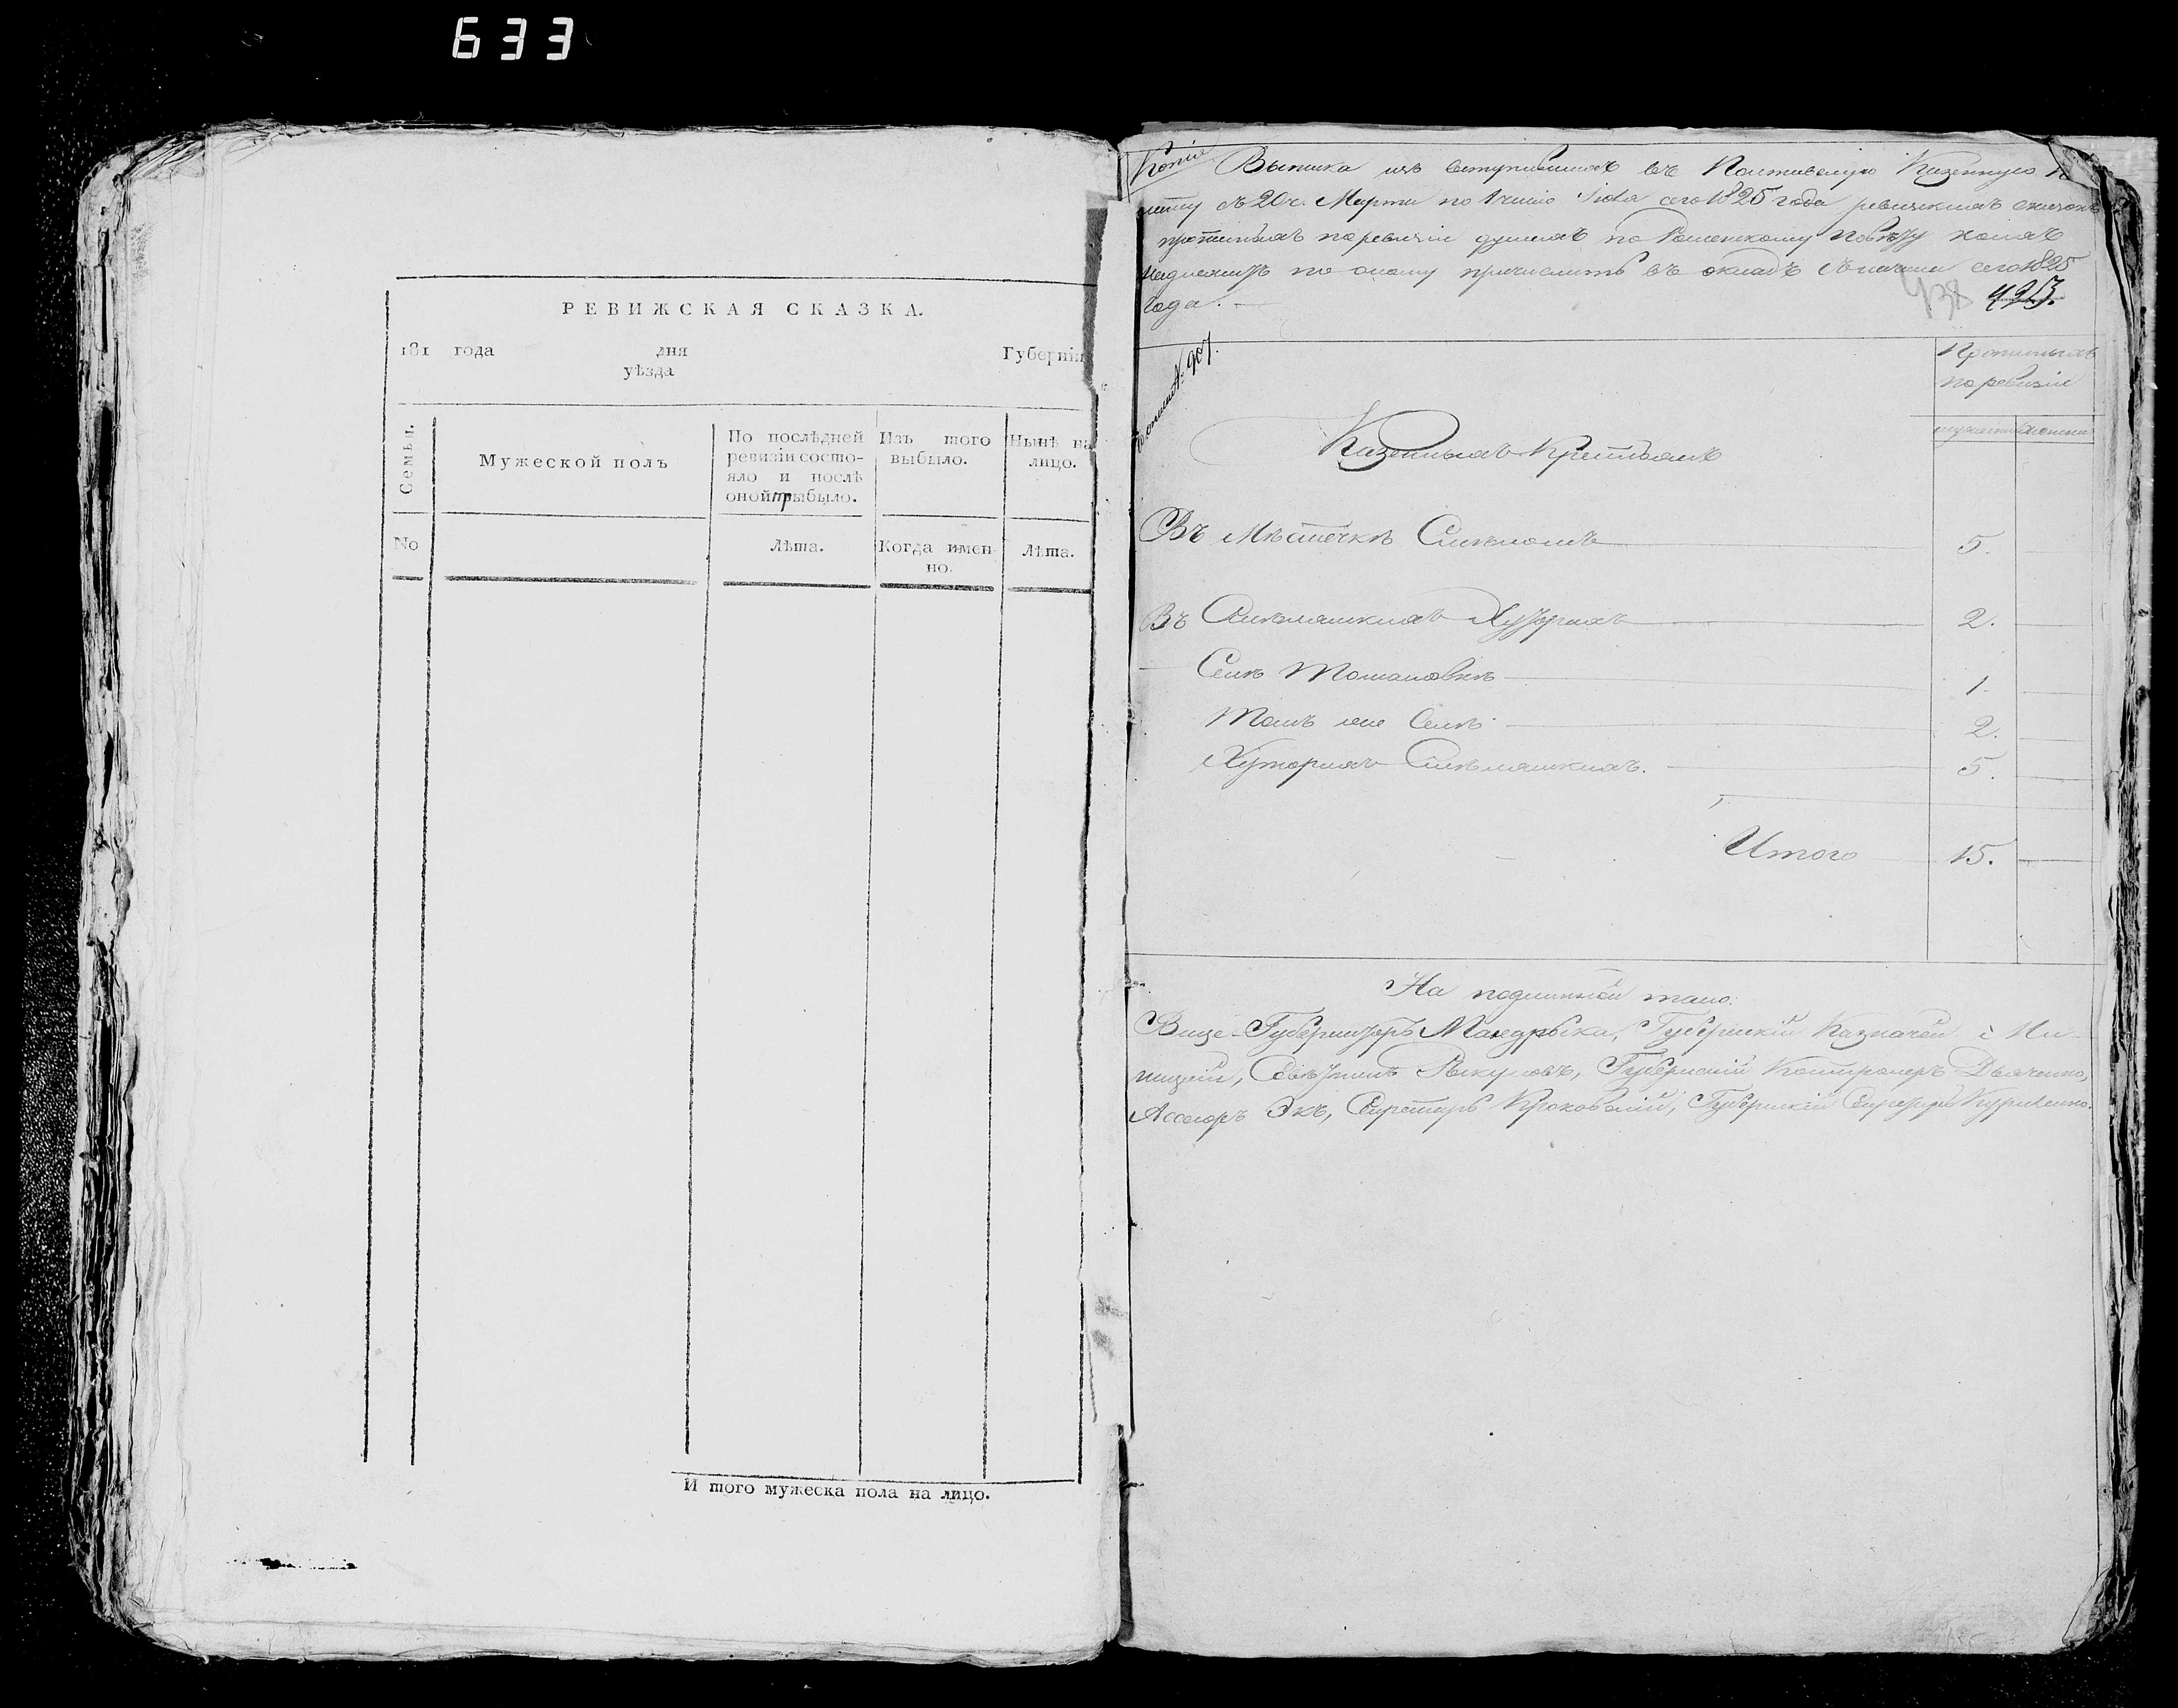 633
РЕВИЖСКАЯ СКАЗКА.
181 года дня Губерніи
уѣзда
Семьи.
Мужеской полъ
По послѣдней ревизіи состо-
яло и послѣ
оной прибыло.
Изъ того
выбыло.
Нынѣ на
лицо.
No
Лѣта.
Когда имен-
но.
Лѣта.
И того мужеска пола на лицо.
Копія
Выписка изъ вступившихъ въ Полтавскую Казенную
съ 20 ч. Марта по 1 число сего 1825 года ревижскихъ сказокъ
прописныхъ по ревизіи душахъ по Роменскому Повѣту коихъ
надлежитъ по оному причислить въ окладъ съ начала сего 1825
года.
438 425.
№ 907.
Прописныхъ
по ревизіи
Казенныхъ Крестьянъ
Въ Мѣстечкѣ Смѣломъ 5.
Въ Смѣлянскихъ Хуторахъ 2.
Селѣ Томашовкѣ 1.
Томъ же Селѣ 2.
Хуторахъ Смѣлянскихъ. 5.
Итого 15.
На подлинной тако:
Вице-Губернаторъ Мандрыка, Губернскій Казначей
Совѣтникъ Губернскій Контролеръ Дьяченко,
Ассесоръ Экъ, Секретарь Губернскій Секретарь